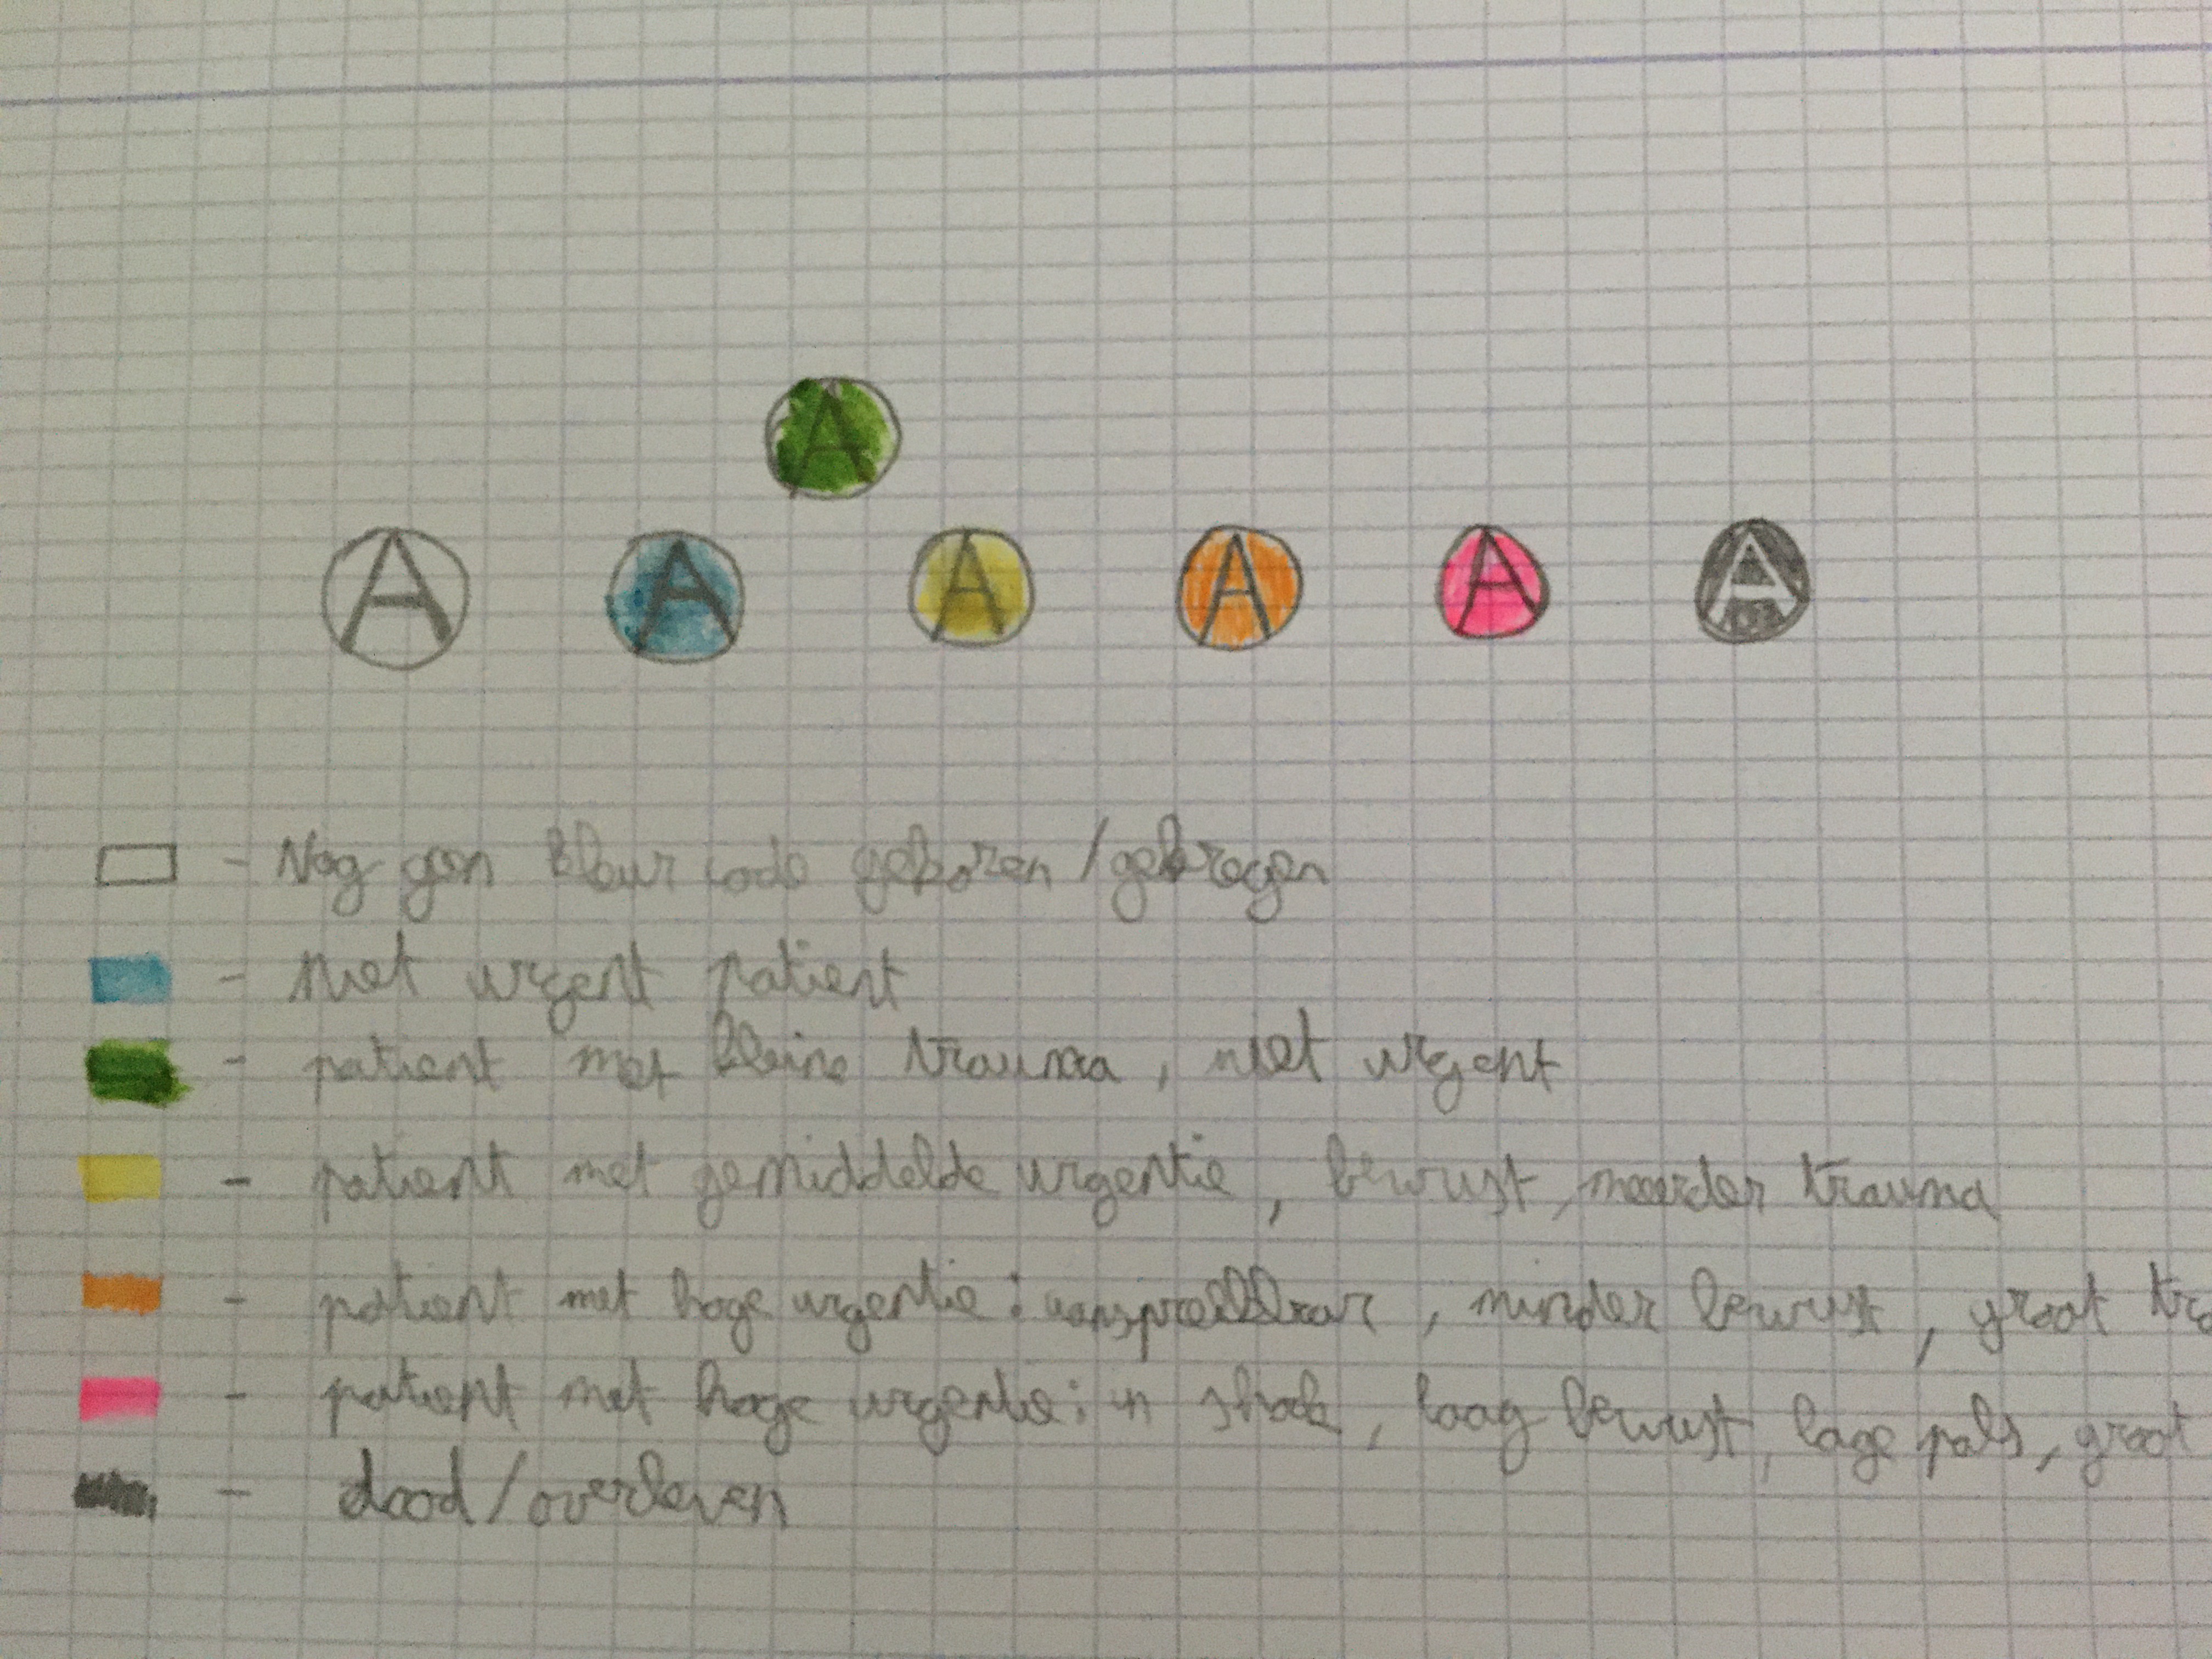 A
A A A A A A
- Nog geen kleur code gekozen / gekregen
- Niet urgent patient
- patient met kleine trauma, niet urgent
- patient met gemiddelde urgentie, bewust, meerder trauma
- patient met hoge urgentie : aanspreekbaar, minder bewust, groot tra
- patient met hoge urgentie : in shock, laag bewust, lage pols, groot
- dood/overleden